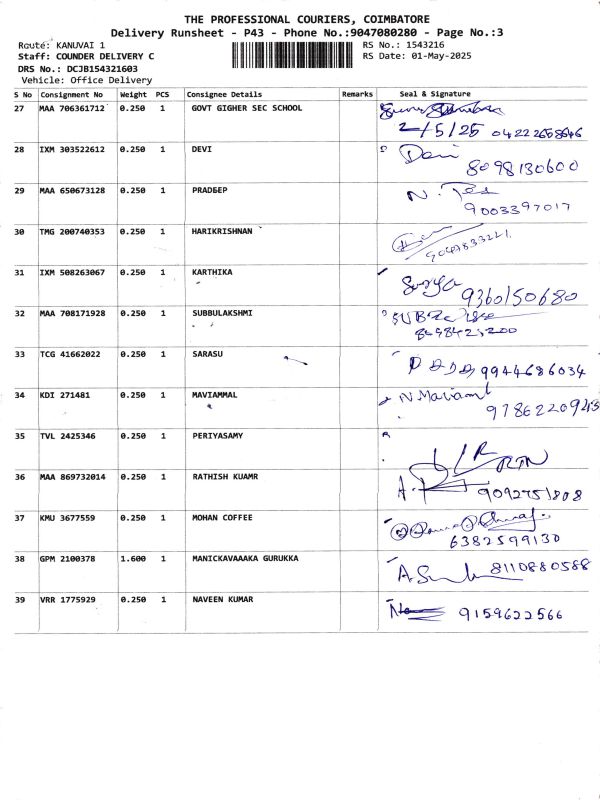 THE PROFESSIONAL COURIERS, COIMBATORE
Delivery Runsheet - P43 - Phone No.:9047080280 - Page No.:3
Route: KANUVAI 1
RS No.: 1543216
Staff: COUNDER DELIVERY C
RS Date: 01-May-2025
DRS No.: DCJB154321603
Vehicle: Office Delivery
S No Consignment No Weight PCS Consignee Details Remarks Seal & Signature
27 MAA 706361712 0.250 1 GOVT GIGHER SEC SCHOOL
2/5/25 04222658646
28 IXM 303522612 0.250 1 DEVI Devi
8098130600
29 MAA 650673128 0.250 1 PRADEEP N.
9003397017
30 TMG 200740353 0.250 1 HARIKRISHNAN
31 IXM 508263067 0.250 1 KARTHIKA Surya
9360150680
32 MAA 708171928 0.250 1 SUBBULAKSHMI
33 TCG 41662022 0.250 1 SARASU
9944686034
34 KDI 271481 0.250 1 MAVIAMMAL N. Maviammal
9786220943
35 TVL 2425346 0.250 1 PERIYASAMY
RTN
36 MAA 869732014 0.250 1 RATHISH KUAMR A.
9092751808
37 KMU 3677559 0.250 1 MOHAN COFFEE
6382599130
38 GPM 2100378 1.600 1 MANICKAVAAAKA GURUKKA
8110880588
39 VRR 1775929 0.250 1 NAVEEN KUMAR
9159622566